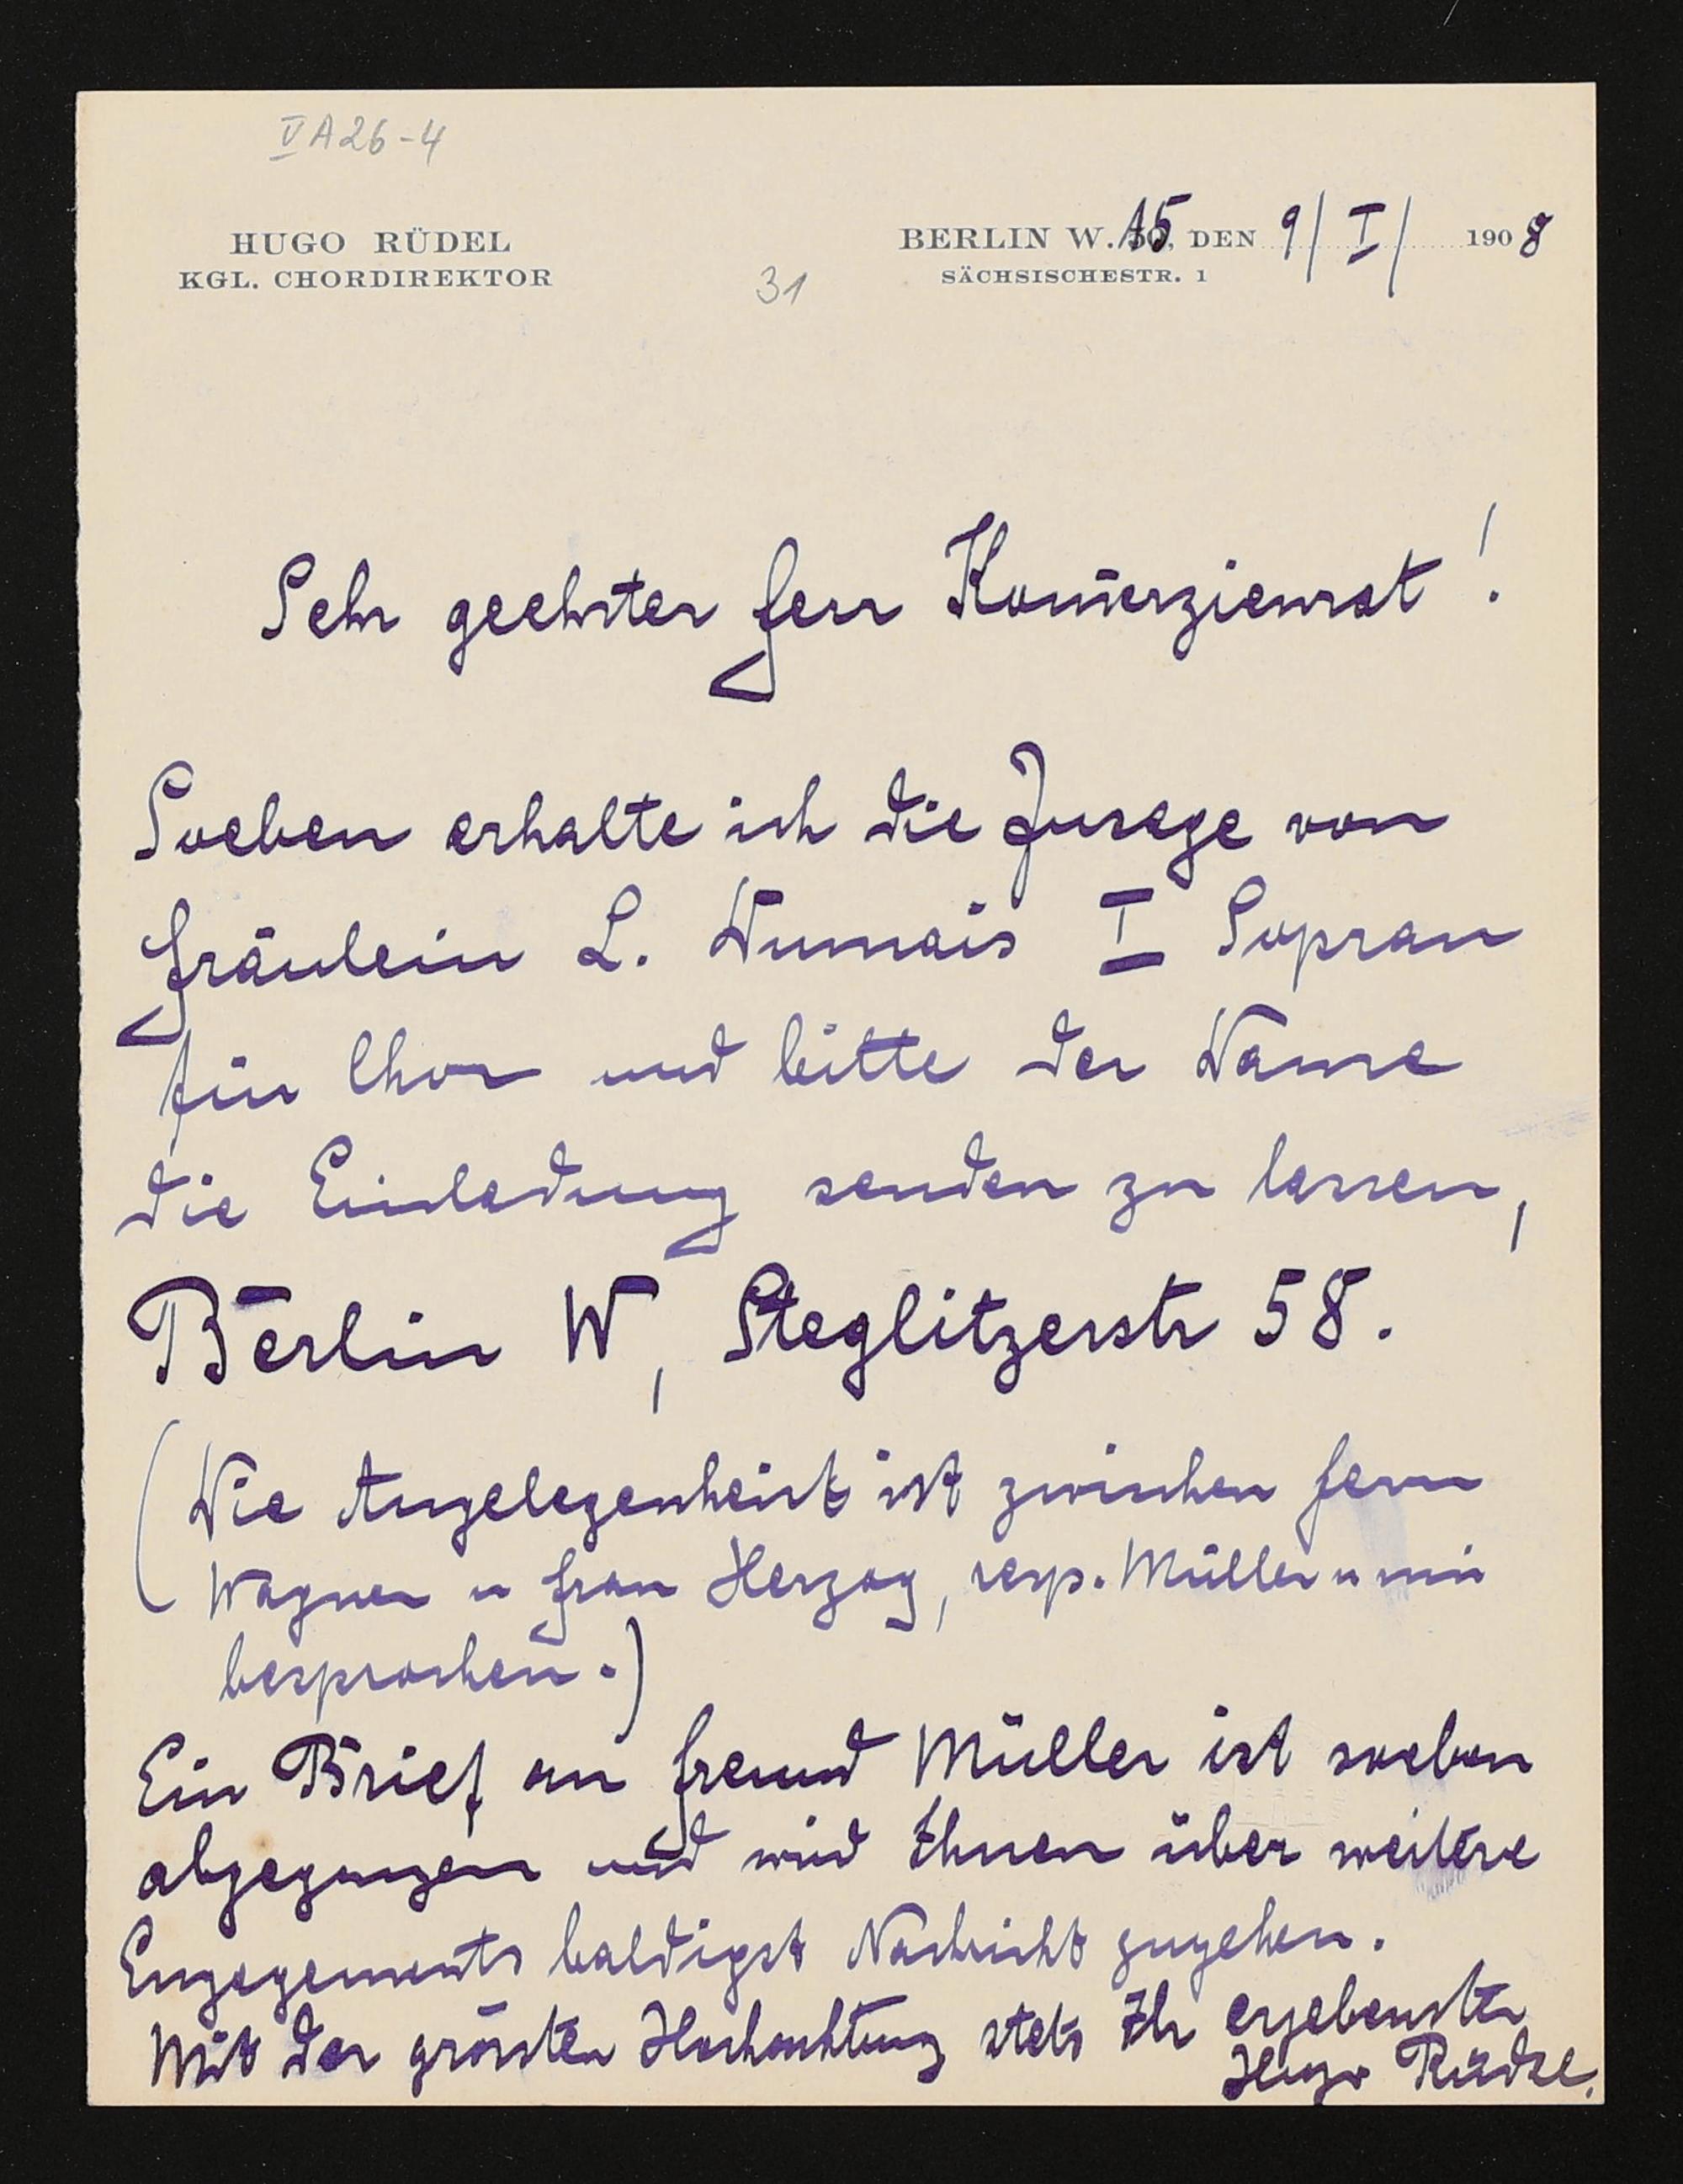 V A 26-4
HUGO RÜDEL
KGL. CHORDIREKTOR
BERLIN W. 15, DEN 9/I/ 1908
SÄCHSISCHESTR. 1
31
Sehr geehrter Herr Kom̄erzienrat!
Soeben erhalte ich die Zusage von
Fräulein L. I Sopran
für Chor und bitte der Dame
die Einladung senden zu lassen,
Berlin W, Steglitzerstr 58.
(Die Angelegenheit ist zwischen Herrn
Wagner u Frau Herzog, resp. Müller u mir
besprochen.)
Ein Brief an Freund Müller ist soeben
abgegangen und wird Ihnen über weitere
Engagements baldigst Nachricht zugehen.
Mit der grössten Hochachtung stets Ihr ergebenster
Hugo Rüdel.